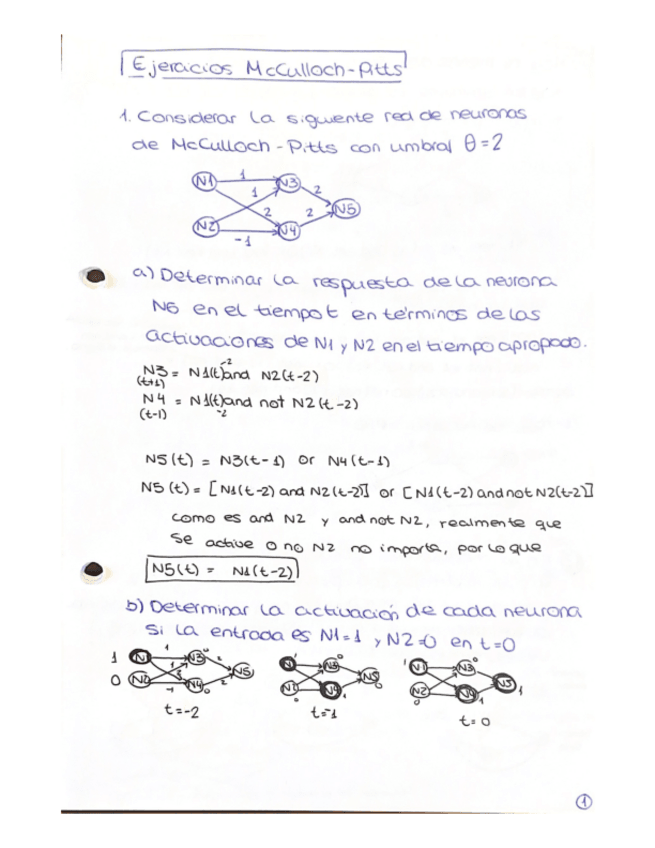 Ejercicios McCulloch-Pitts
1. Considerar la siguiente red de neuronas
de McCulloch-Pitts con umbral θ=2
N1 1 N3 2
1 N5
2 2
N2 -1 N4
a) Determinar la respuesta de la neurona
N5 en el tiempo t en términos de las
activaciones de N1 y N2 en el tiempo apropado.
N3 = N1(t) and N2(t-2)
-2
(t+1)
N4 = N1(t) and not N2(t-2)
(t-1) -2
N5(t) = N3(t-1) or N4(t-1)
N5(t) = [N1(t-2) and N2(t-2)] or [N1(t-2) and not N2(t-2)]
como es and N2 y and not N2, realmente que
se active o no N2 no importa, por lo que
N5(t) = N1(t-2)
b) Determinar la activación de cada neurona
si la entrada es N1=1 y N2=0 en t=0
1 N1 1 N3 0 2 N5
0 N2 -1 N4 0 2
N3 0 N5 0
N4
N1 N3 0
N2 0 N4 1 1
t=-2 t=-1 t=0
1